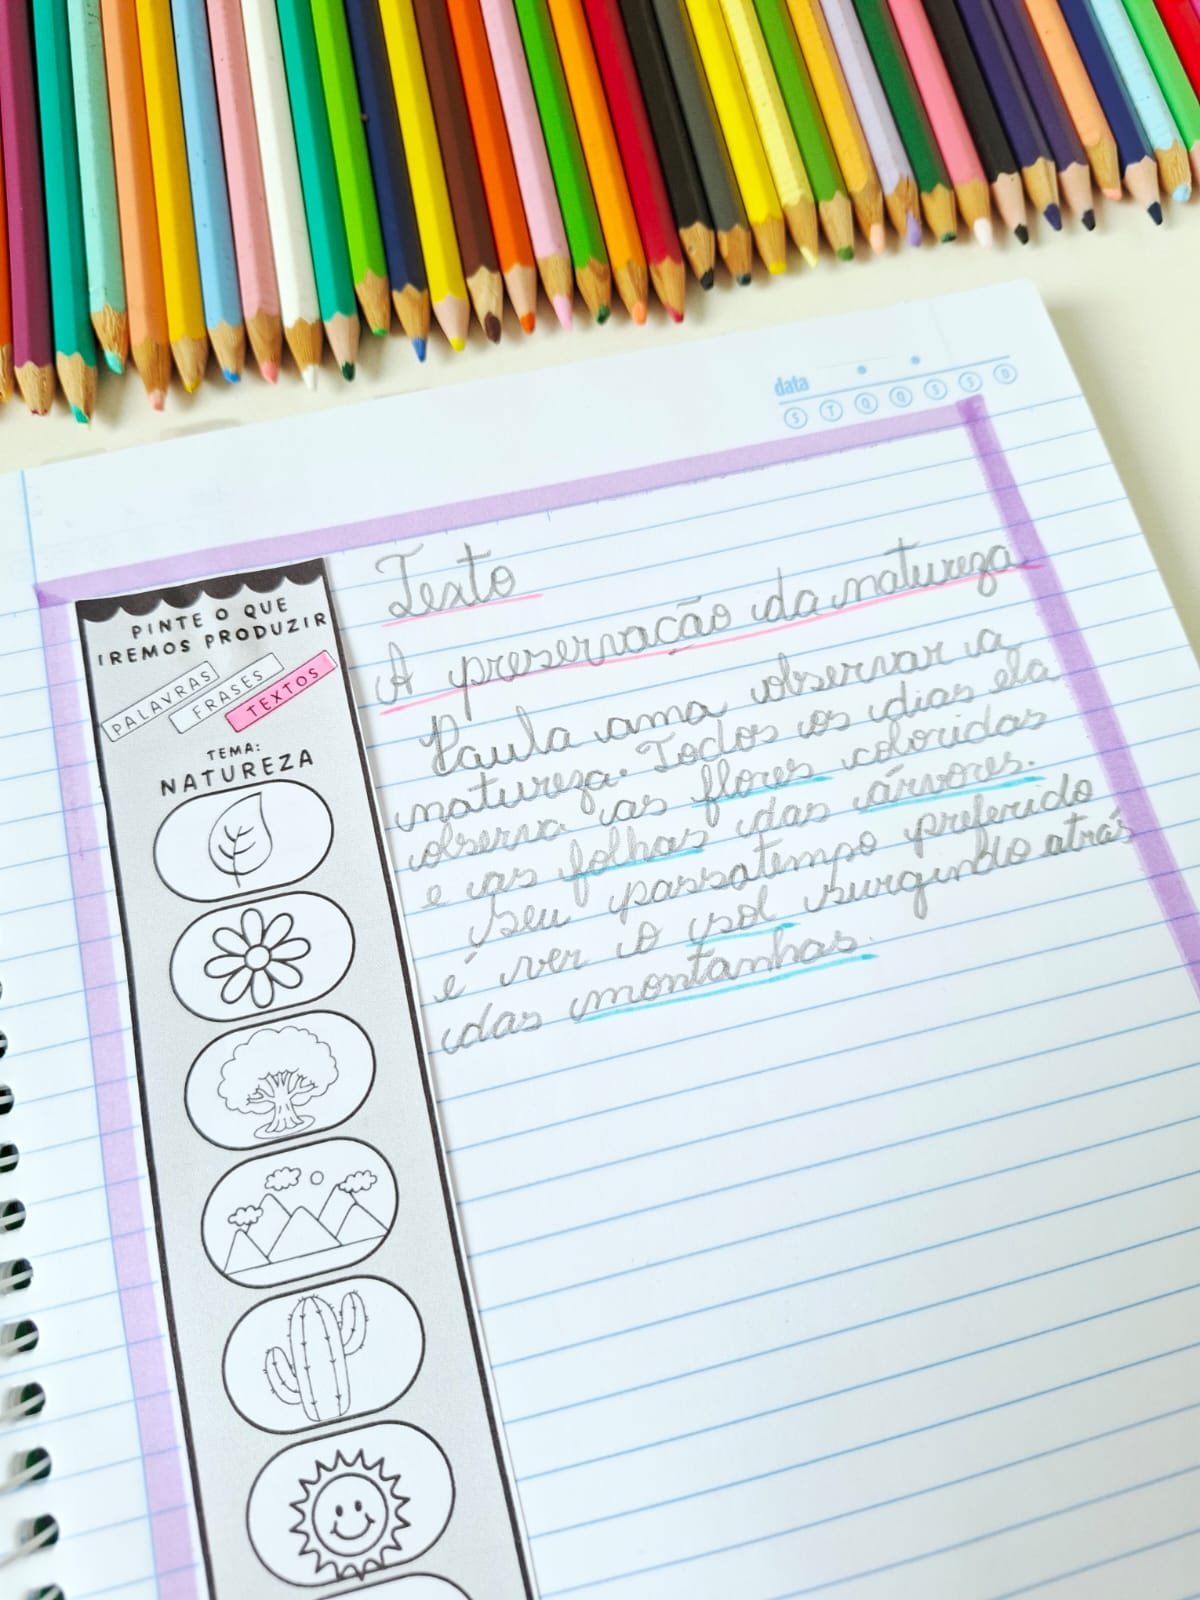 data
S T Q Q S S D
PINTE O QUE
IREMOS PRODUZIR
PALAVRAS
FRASES
TEXTOS
TEMA:
NATUREZA
Texto
A preservação da natureza
Paula ama observar a
natureza. Todos os dias ela
observa as flores coloridas
e as folhas das árvores.
Seu passatempo preferido
é ver o sol surgindo atrás
das montanhas.